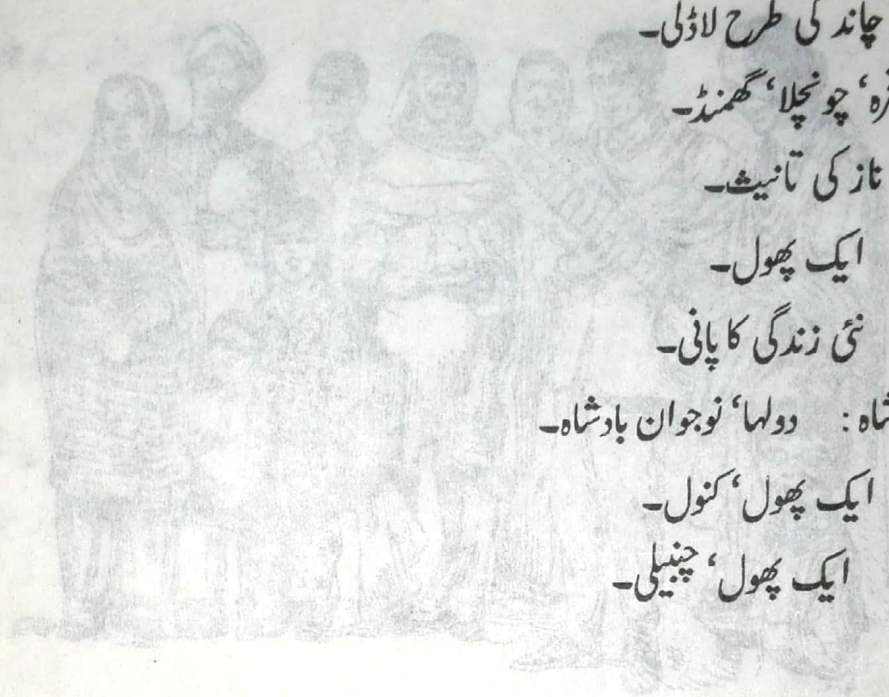 چاند کی طرح لاڈلی۔
‘ چونچلا‘ گھمنڈ۔
ناز کی تانیث۔
ایک پھول۔
نئی زندگی کا پانی۔
شاہ : دولہا‘ نوجوان بادشاہ۔
ایک پھول‘ کنول۔
ایک پھول‘ چنبیلی۔